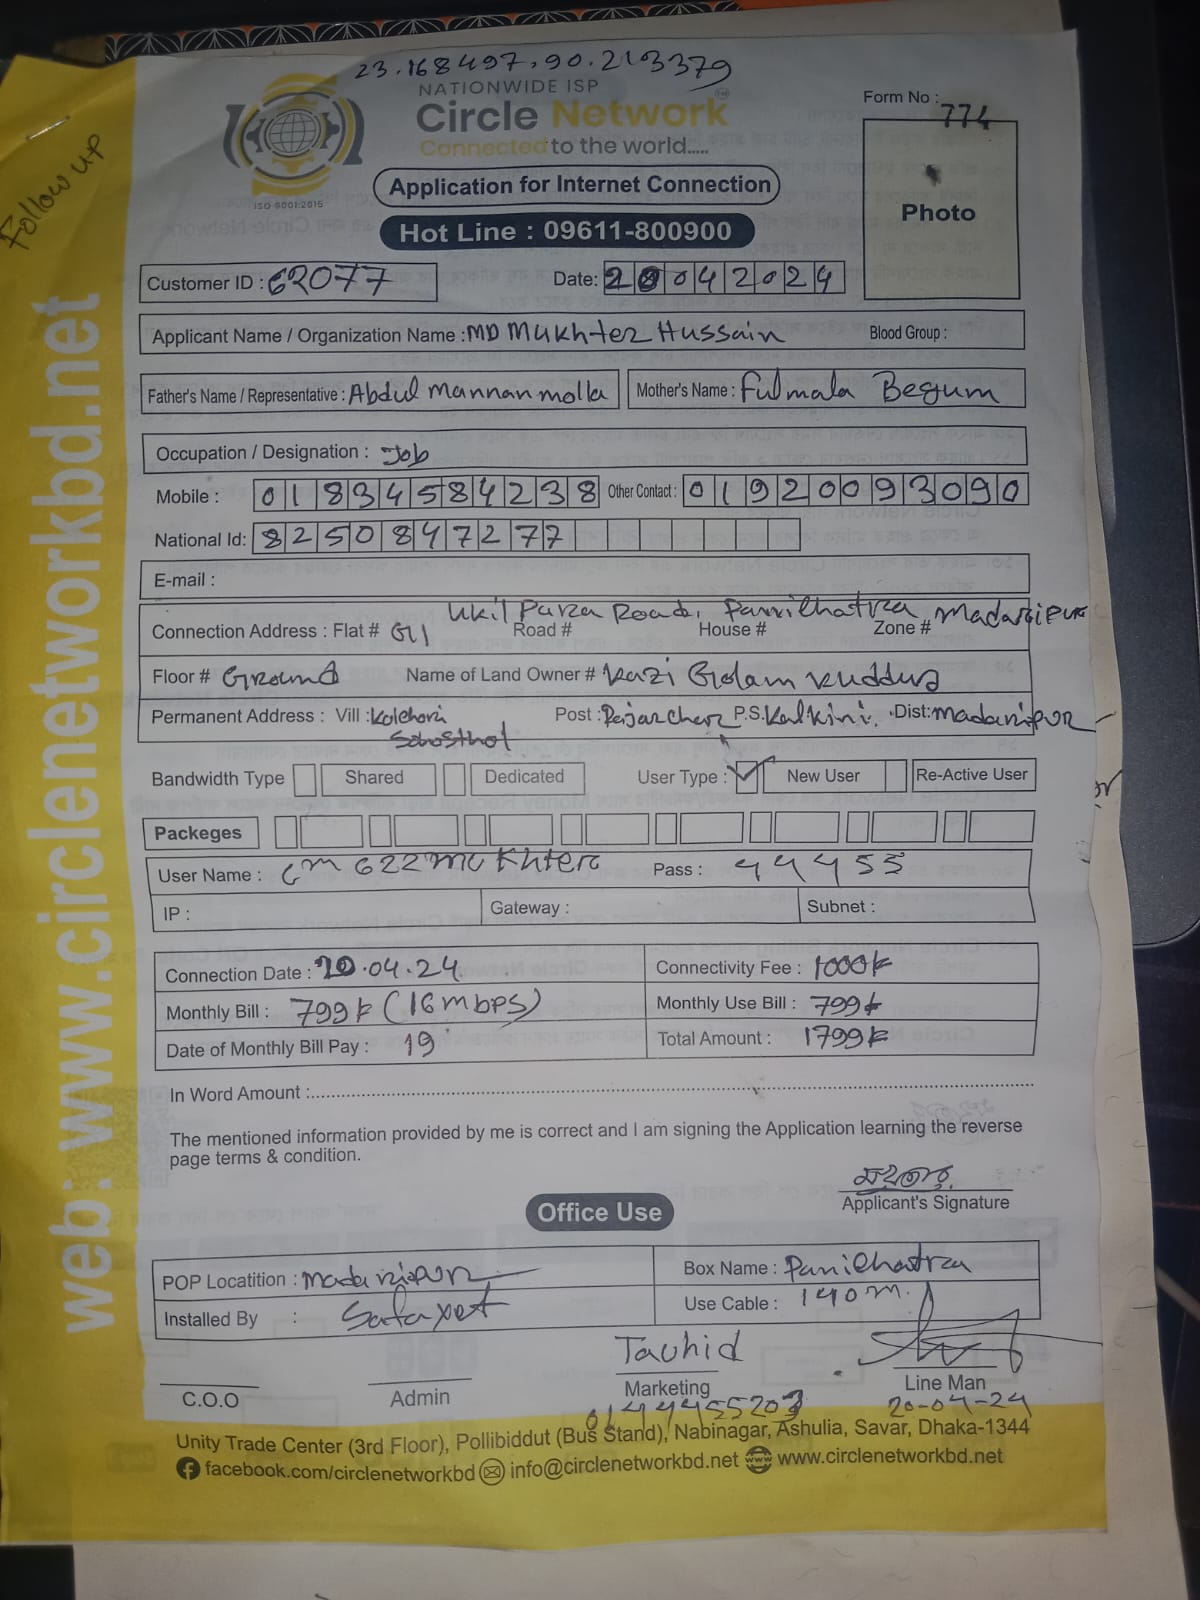 23.168497, 90.213379
NATIONWIDE ISP
Circle Network
Connected to the world.....
ISO 9001:2015
Form No : 774
Application for Internet Connection
Hot Line : 09611-800900
Photo
Follow up
web: www.circlenetworkbd.net
Customer ID : 62077 Date: 20042024
Applicant Name / Organization Name : MD Mukhter Hussain Blood Group :
Father's Name / Representative : Abdul mannan molla Mother's Name : Fulmala Begum
Occupation / Designation : Job
Mobile : 01834584238 Other Contact : 01920093090
National Id: 8250847277
E-mail :
Ukil Para Road, Panichatra, Madaripur
Connection Address : Flat # G1 Road # House # Zone #
Floor # Ground Name of Land Owner # Kazi Golam Kuddus
Permanent Address : Vill : Post : P.S. Kalkini. Dist: madaripur
Bandwidth Type Shared Dedicated User Type : New User Re-Active User
Packeges
User Name : cm622mukhter Pass : 44455
IP : Gateway : Subnet :
Connection Date : 20.04.24 Connectivity Fee : 1000৳
Monthly Bill : 799৳ (16mbps) Monthly Use Bill : 799৳
Date of Monthly Bill Pay : 19 Total Amount : 1799৳
In Word Amount :
The mentioned information provided by me is correct and I am signing the Application learning the reverse
page terms & condition.
Applicant's Signature
Office Use
POP Locatition : madaripur Box Name : Panichatra
Installed By : Use Cable : 140m.
Tauhid
C.O.O Admin Marketing Line Man
01444455203 20-04-24
Unity Trade Center (3rd Floor), Pollibiddut (Bus Stand), Nabinagar, Ashulia, Savar, Dhaka-1344
facebook.com/circlenetworkbd info@circlenetworkbd.net www.circlenetworkbd.net